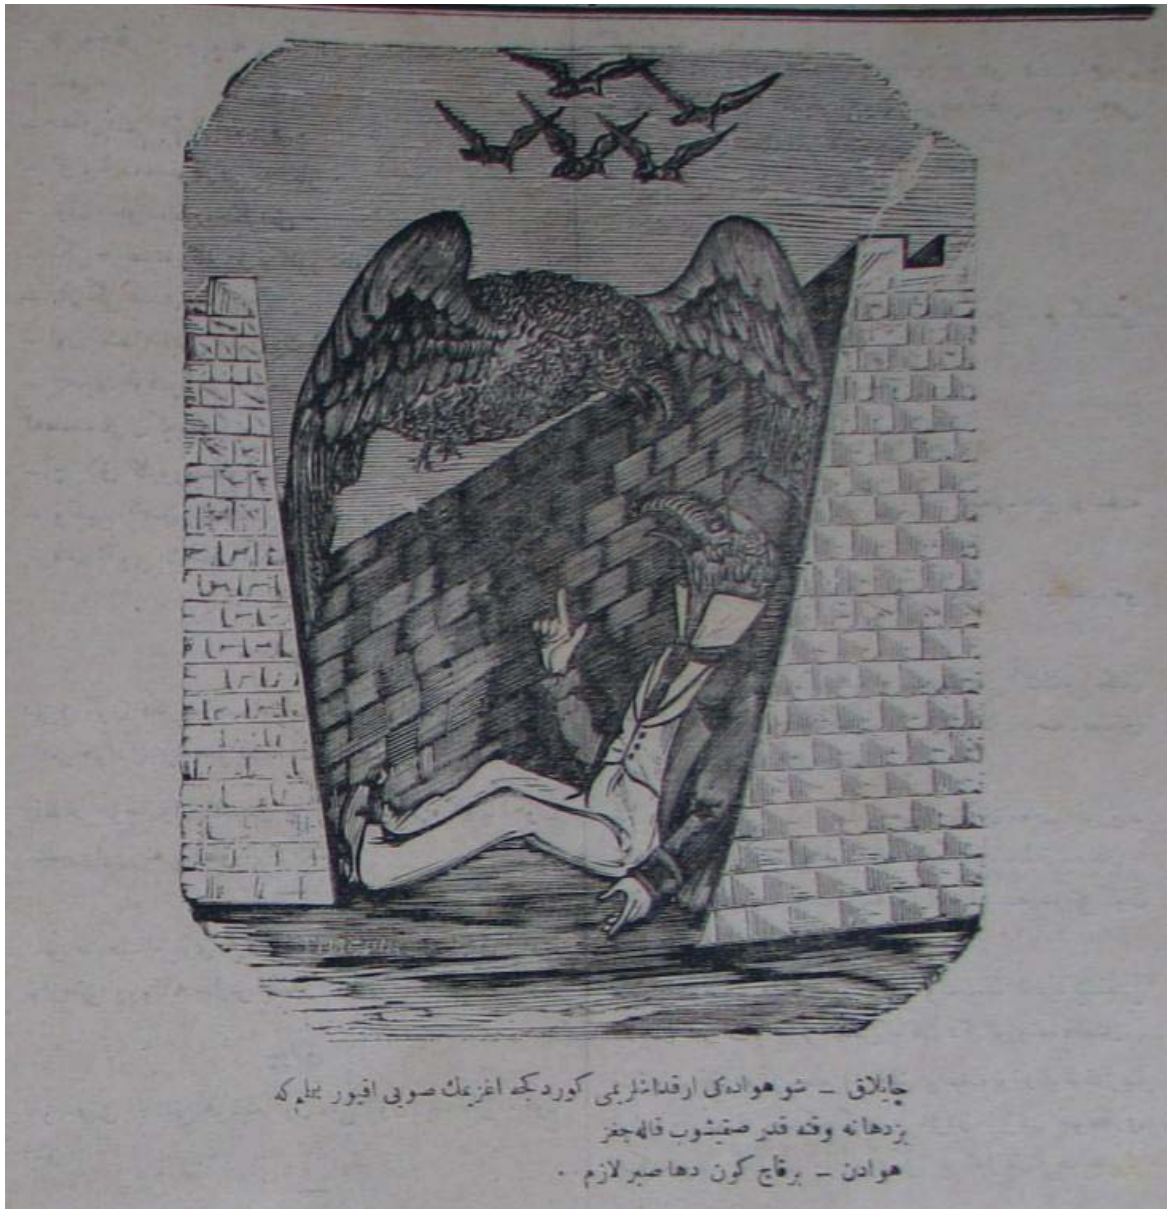 چایلاق – شو هواده‌كی ارقداشلریمی كوردكجه اغزیمك صویی اقیور بیلم كه
بزدها نه وقته قدر صقیشوب قاله‌جغز
هوادن – برقاچ كون دها صبر لازم .